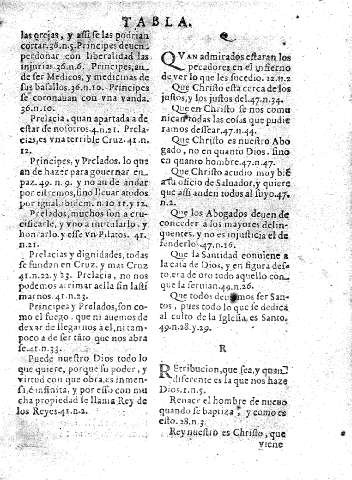 TABLA.
las orejas, y assi se las podrian
cortar. 36.n.5. Principes deuen
perdonar con liberalidad las
injurias. 36.n.6. Principes, an
de ser Medicos, y medicinas de
sus basallos. 36.n.10. Principes
se coronauan con vna vanda.
36.n.10.
Prelacia, quan apartada a de
estar de nosotros. 4.n.21. Prela-
cias, es vna terrible Cruz. 41.n.
12.
Principes, y Prelados. lo que
an de hazer para gouernar en
paz. 49. n. 9. y no an de andar
por estremos, sino lleuar atodos
por igual. n. 11. y 12.
Prelados, muchos son a cru-
cificarle, y vno a
honrarlo. y esse un Pilatos. 41.
n.21.
Prelacias y dignidades, todas
se fundan en Cruz, y mas Cruz
41.n.22. y 23. Prelacia, no nos
podemos arrimar aella sin lasti
marnos. 41.n.23.
Principes y Prelados, son co-
mo el fuego. que ni auemos de
dexar de llegarnos a el, ni tampo-
co a de ser tãto que nos abra
se. 41.n.33.
Puede nuestro Dios todo lo
que quiere, porque su poder, y
virtud con que obra, es inmen-
sa, é infinita, y por esso con mu
cha propiedad se llama Rey de
los Reyes. 41.n.2.
Q
QVAN admirados estaran los
pecadores en el infierno
de ver lo que les sucedio. 12.n.2
Que Christo esta cerca de los
justos, y los justos del. 47.n.34.
Que en Christo se nos comu-
nican todas las cosas que pudie
ramos dessear. 47.n.44.
Que Christo es nuestro Abo
gado, no en quanto Dios. sino
en quanto hombre. 47.n.47.
Que Christo acudio muy biẽ
a su oficio de Saluador, y quiere
que assi anden todos al suyo. 47.
n.2.
Que los Abogados deuen de
conceder a los mayores delin-
quentes. y no es injusticia el de
fenderlo. 47.n.16.
Que la Santidad conuiene a
la casa de Dios, y en figura des-
to era de oro todo aquello con
que la seruian. 49.n.26.
Que todos deuemos ser San-
tos, pues todo lo que se dedica
al culto de la Iglesia, es Santo.
49.n.28. y 29.
R
REtribucion, que sea, y quan
differente es la que nos haze
Dios. 1.n.5.
Renacer el hombre de nueuo
quando se baptiza, y como es
esto. 28.n.3.
Rey nuestro es Christo, que
viene